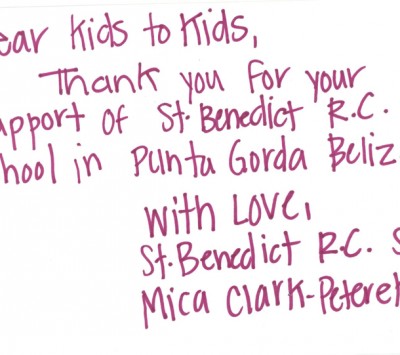 ear Kids to Kids,
Thank you for your
upport of St. Benedict R.C.
hool in Punta Gorda Beliz
with Love,
St. Benedict R.C. S
Mica Clark-Petere